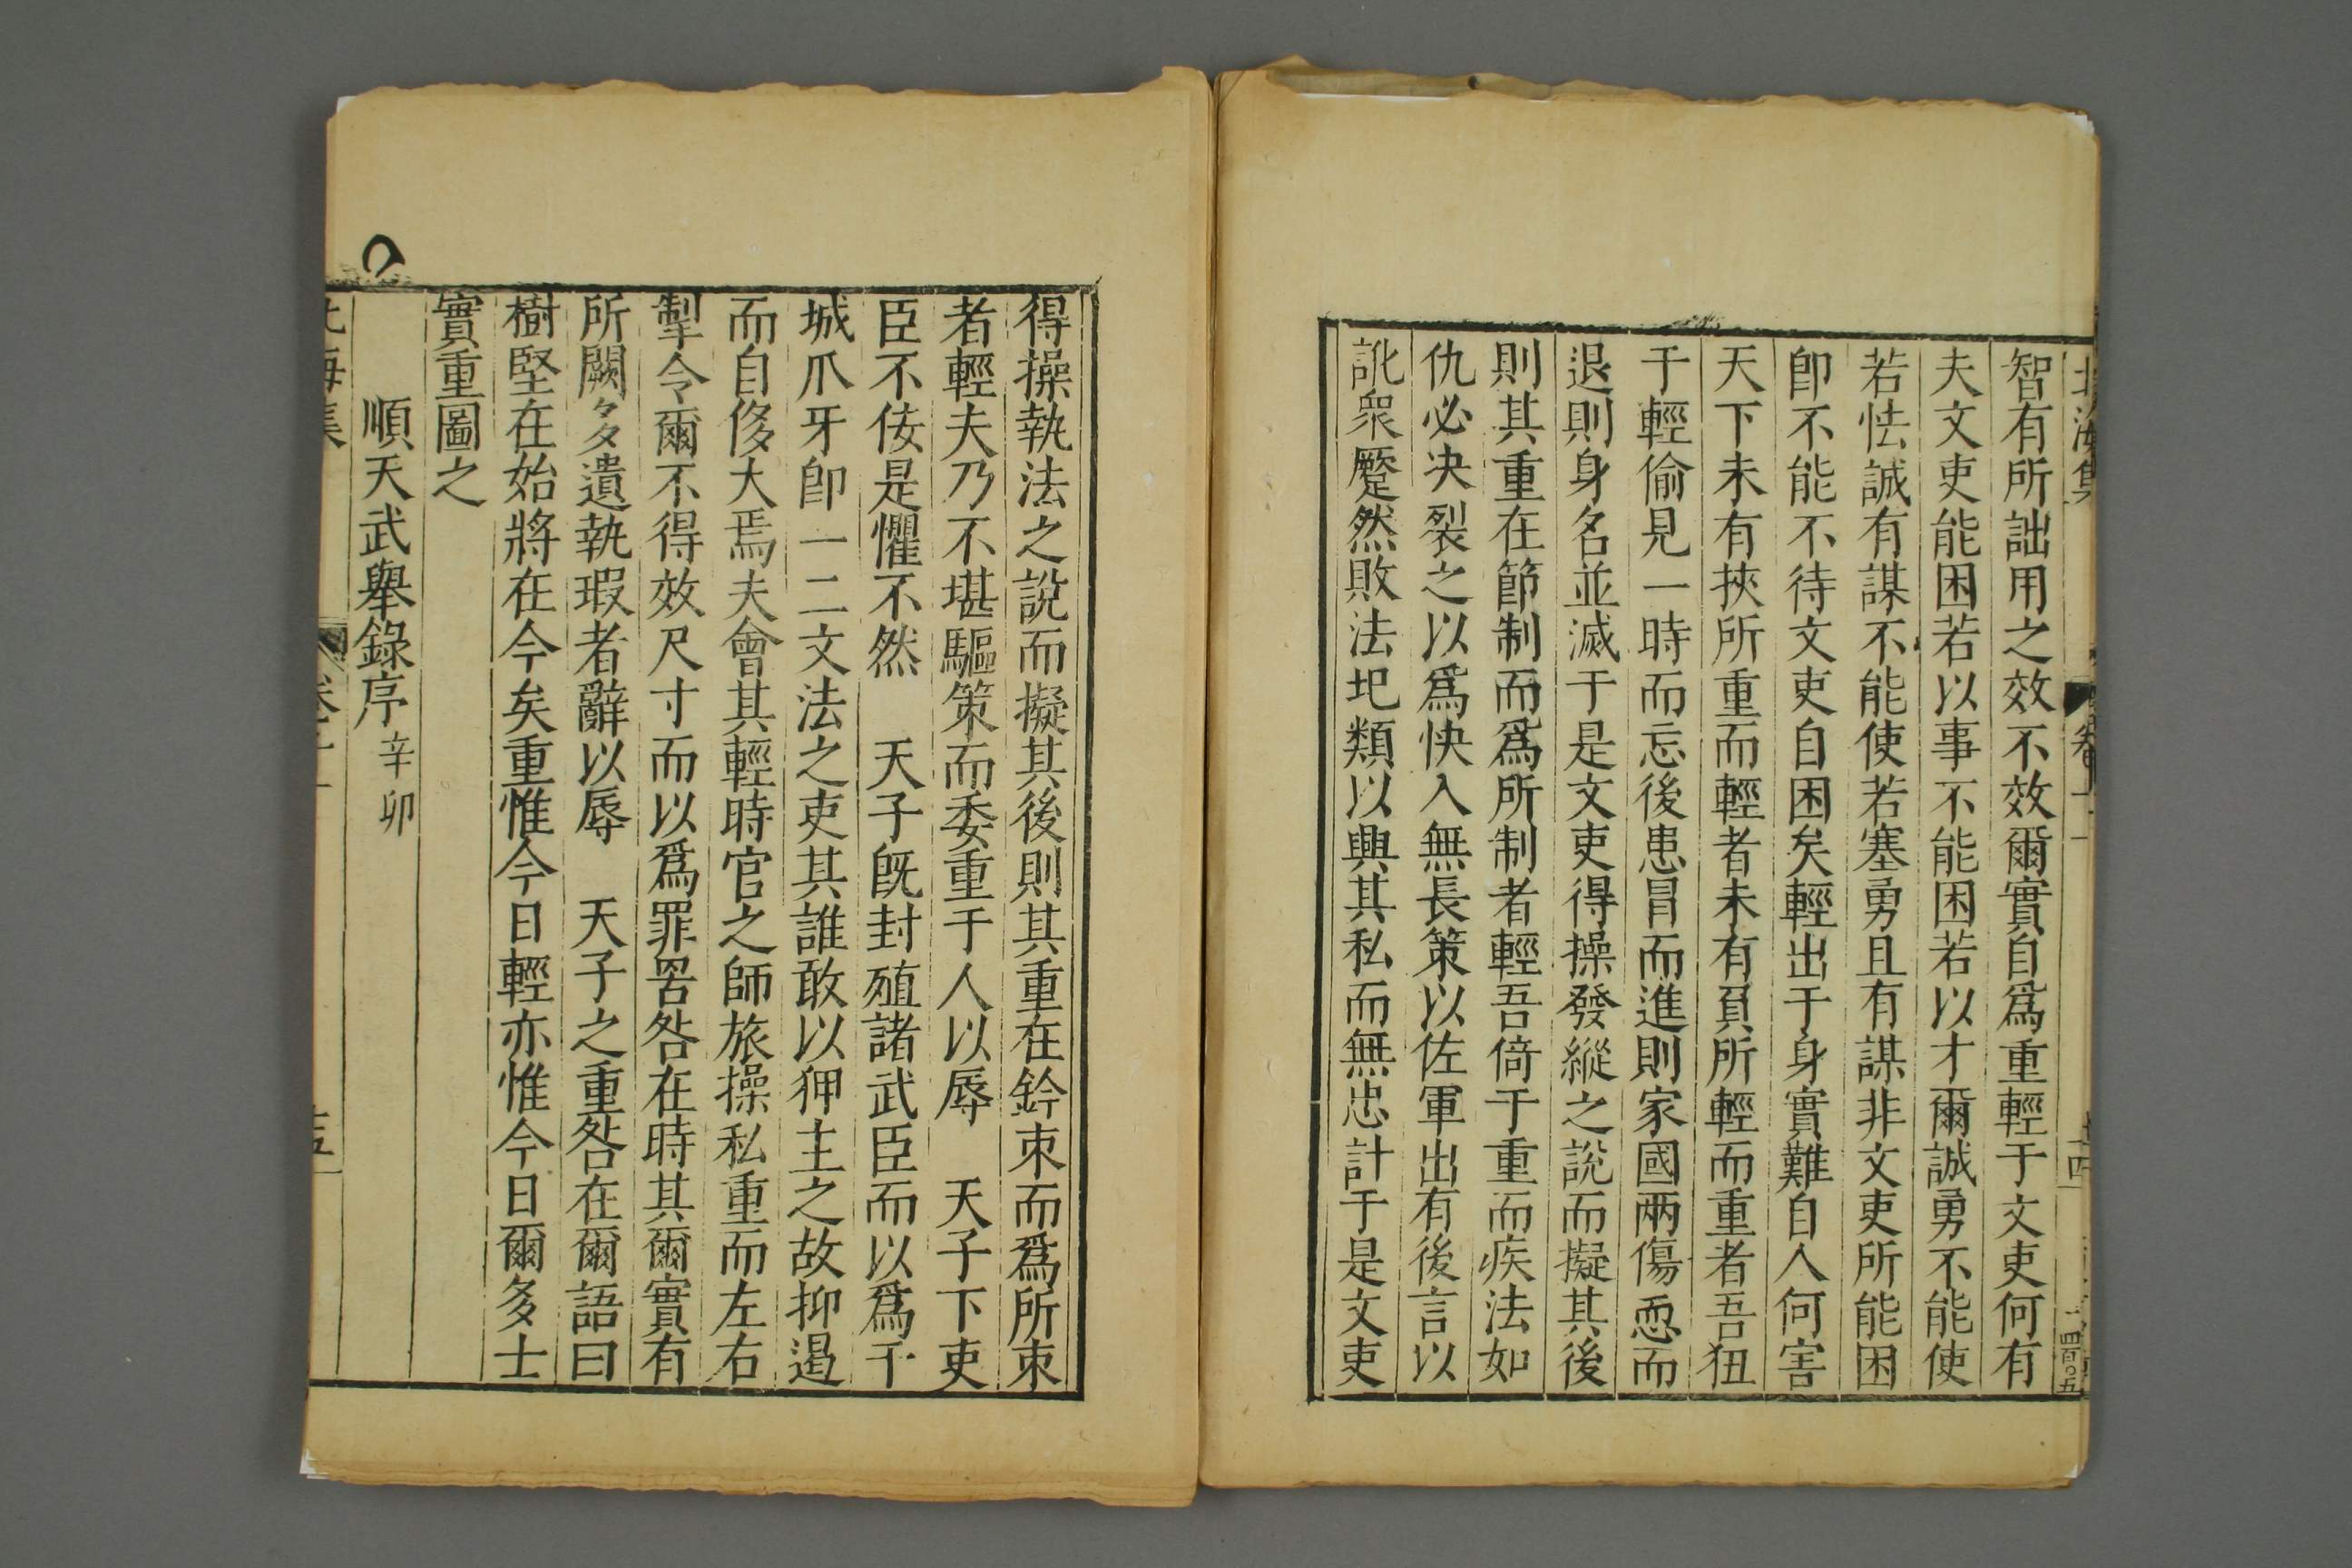 北海集
卷十一
十四
四百〇五
智有所詘用之效不效爾實自爲重輕于文吏何有
夫文吏能困若以事不能困若以才爾誠勇不能使
若怯誠有謀不能使若塞勇且有謀非文吏所能困
卽不能不待文吏自困矣輕出于身實難自人何害
天下未有挾所重而輕者未有負所輕而重者吾狃
于輕偷見一時而忘後患冒而進則家國兩傷恧而
退則身名並滅于是文吏得操發縱之說而擬其後
則其重在節制而爲所制者輕吾倚于重而疾法如
仇必决裂之以爲快入無長策以佐軍出有後言以
訛衆蹷然敗法圯類以興其私而無忠計于是文吏
得操執法之說而擬其後則其重在鈐束而爲所束
者輕夫乃不堪驅策而委重于人以辱　天子下吏
臣不佞是懼不然　天子旣封殖諸武臣而以爲干
城爪牙卽一二文法之吏其誰敢以狎主之故抑遏
而自侈大焉夫會其輕時官之師旅操私重而左右
掣令爾不得效尺寸而以爲罪罟咎在時其爾實有
所闕多遺執瑕者辭以辱　天子之重咎在爾語曰
樹堅在始將在今矣重惟今日輕亦惟今日爾多士
實重圖之
順天武舉錄序辛卯
北海集
卷十一
十五